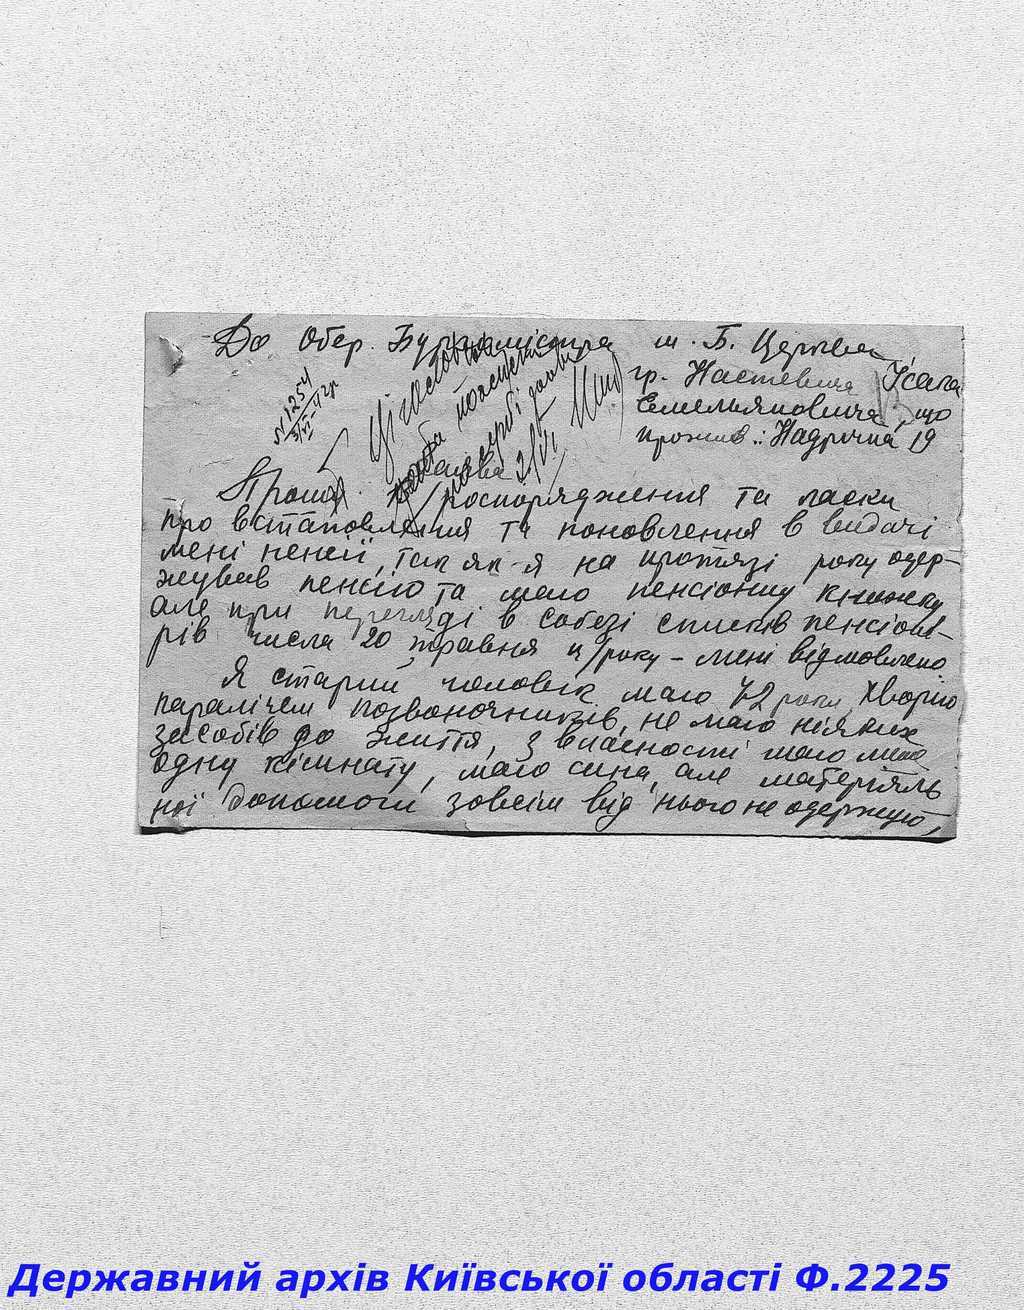 До Обер. Бургомістра м. Б. Церкви
гр. Настевича Ісака
Емельяновича, що
прожив.: Надрічна 19
№ 1254
3/VI-42р
Заява
Прошу розпорядження та ласки
про встановлення та поновлення в видачі
мені пенсії, так як я на протязі року одер-
жував пенсію та маю пенсіонну книжку
але при перегляді в собезі списків пенсіоне-
рів числа 20 травня ц/року - мені відмовлено
Я старий чоловік маю 72 роки, хворію
паралічем позвоночників, не маю ніяких
засобів до життя, з власності маю лише
одну кімнату, маю сина, але матеріяль
ної допомоги зовсім від нього не одержую,
Державний архів Київської області Ф.2225